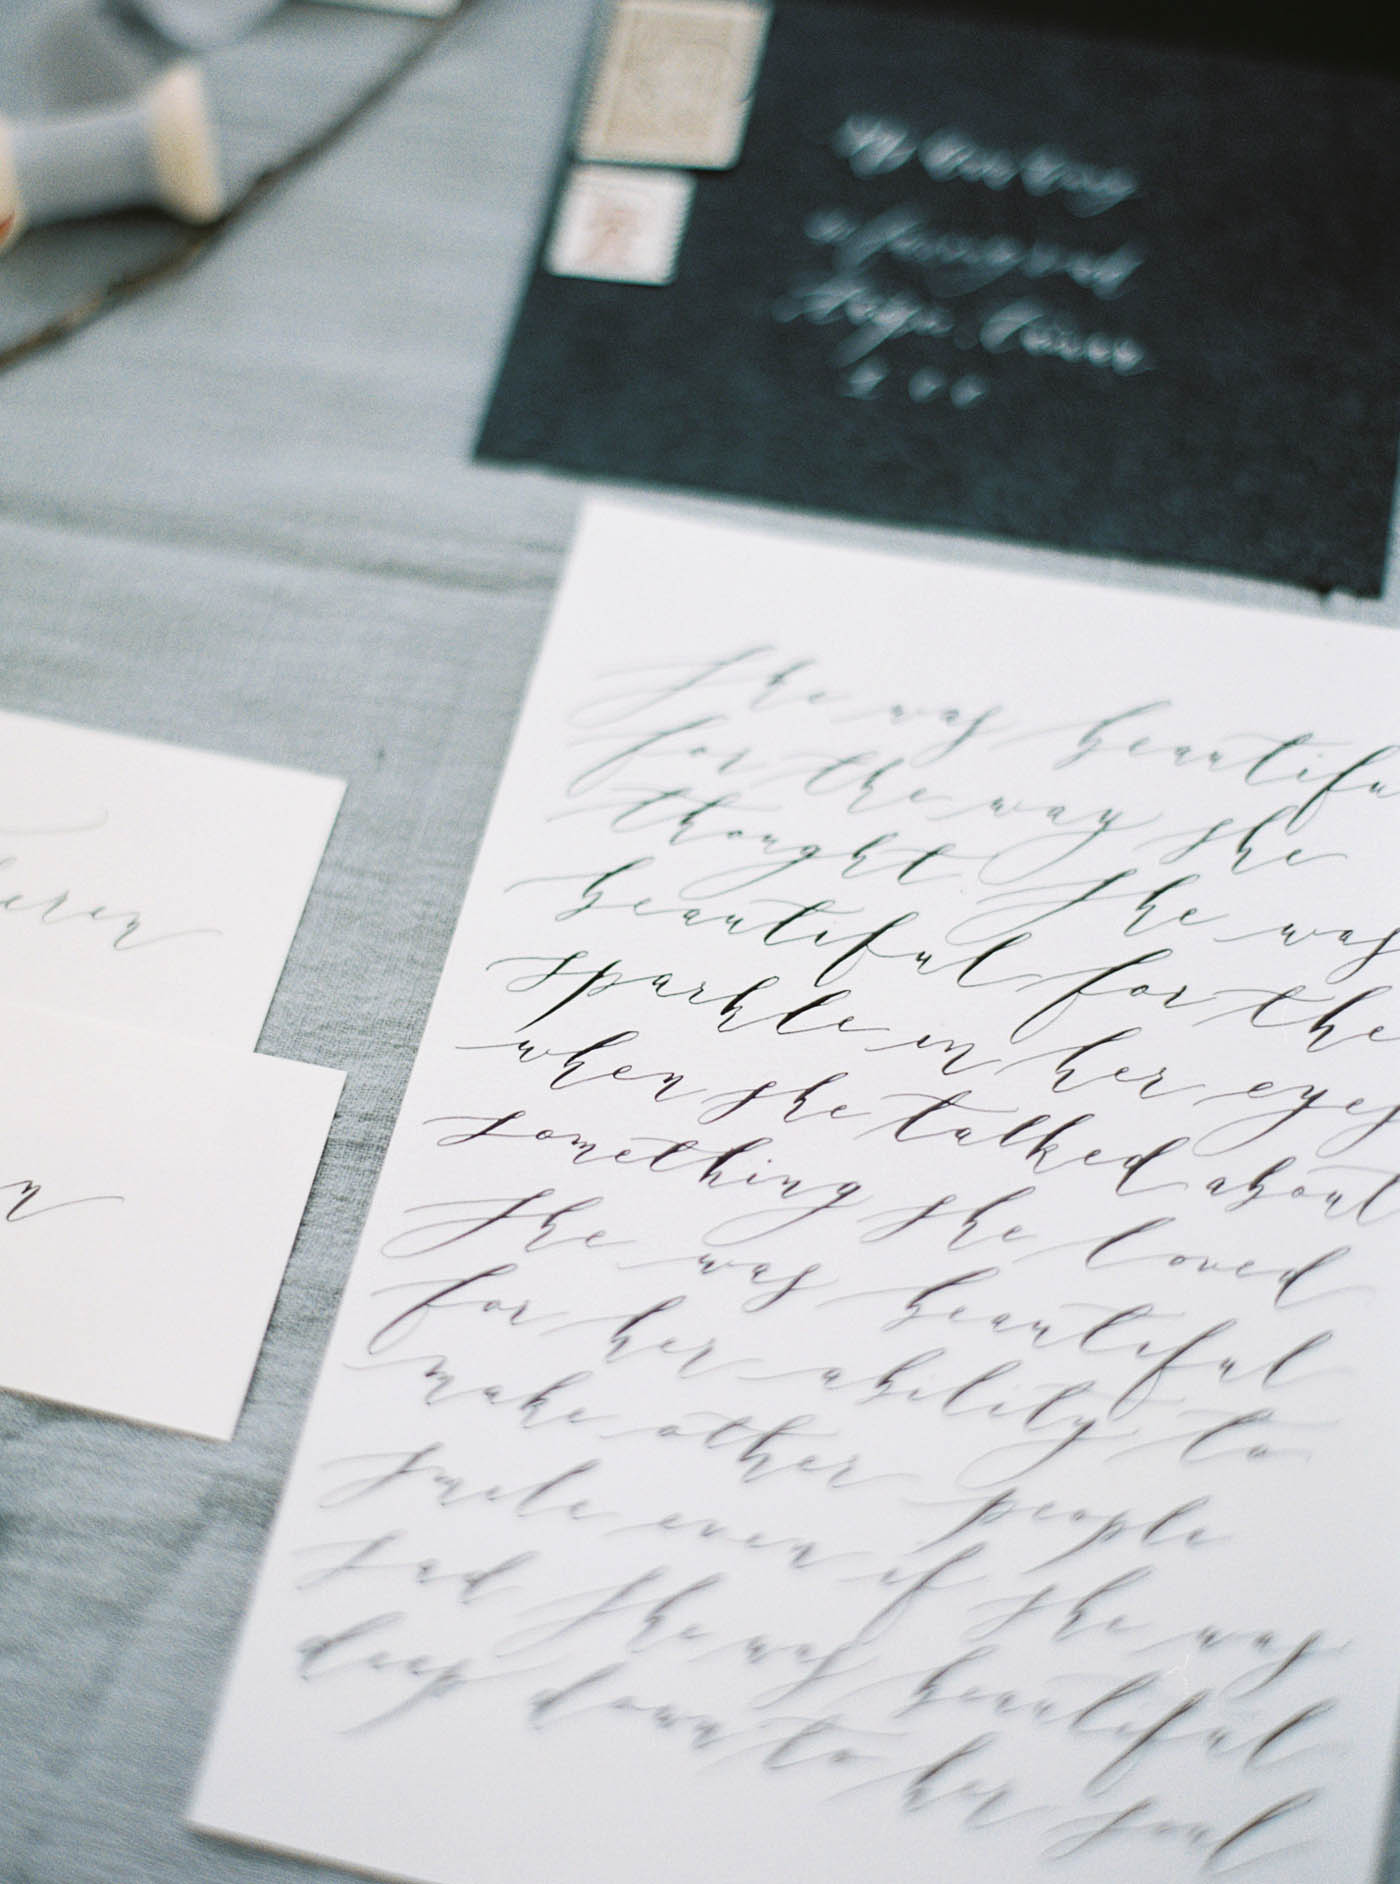 She was beautiful
for the way she
thought. She was
beautiful for the
sparkle in her eyes
when she talked about
something she loved
She was beautiful
for her ability to
make other people
smile even if she was
sad She was beautiful
deep down to her soul